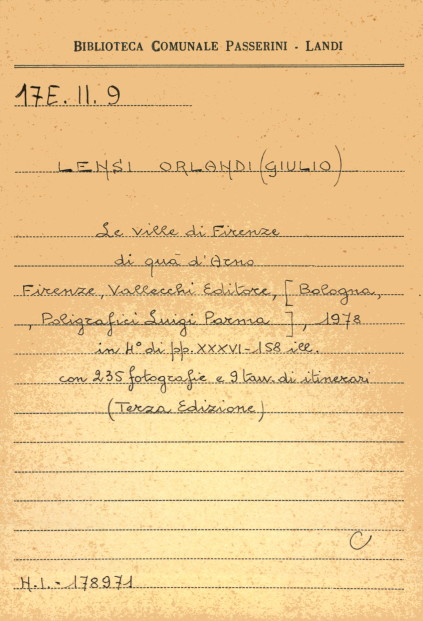 BIBLIOTECA COMUNALE PASSERINI - LANDI
17E. II. 9
LENSI ORLANDI (GIULIO)
Le ville di Firenze
di quà d'Arno
Firenze, Vallecchi Editore, [Bologna,
, Poligrafici Luigi Parma], 1978
in 4° di pp. XXXVI-158 ill.
con 235 fotografie e 9 tav. di itinerari
(Terza Edizione)
C
H.I. - 178971